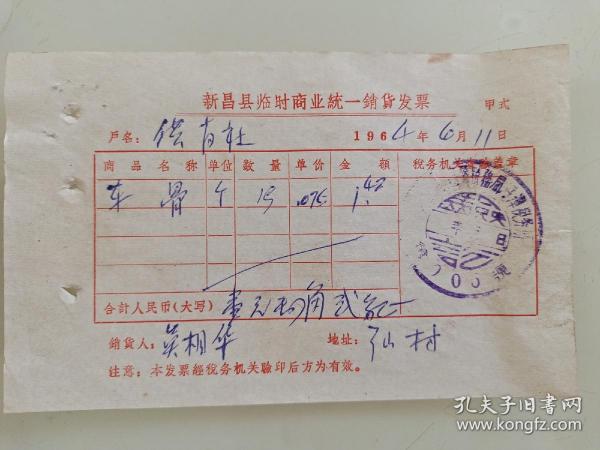 新昌县临时商业統一銷貨发票 甲式
戶名： 供 销社 196 4 年 6 月 11 日
商品名称 单位 数量 单价 金額 税务机关 盖章
车骨 个 .076 1.42
合計人民币(大写) 壹元 角弍分
銷貨人： 吴相华 地址： 村
注意：本发票經稅务机关驗印后方为有效。
孔夫子旧书网
www.kongfz.com